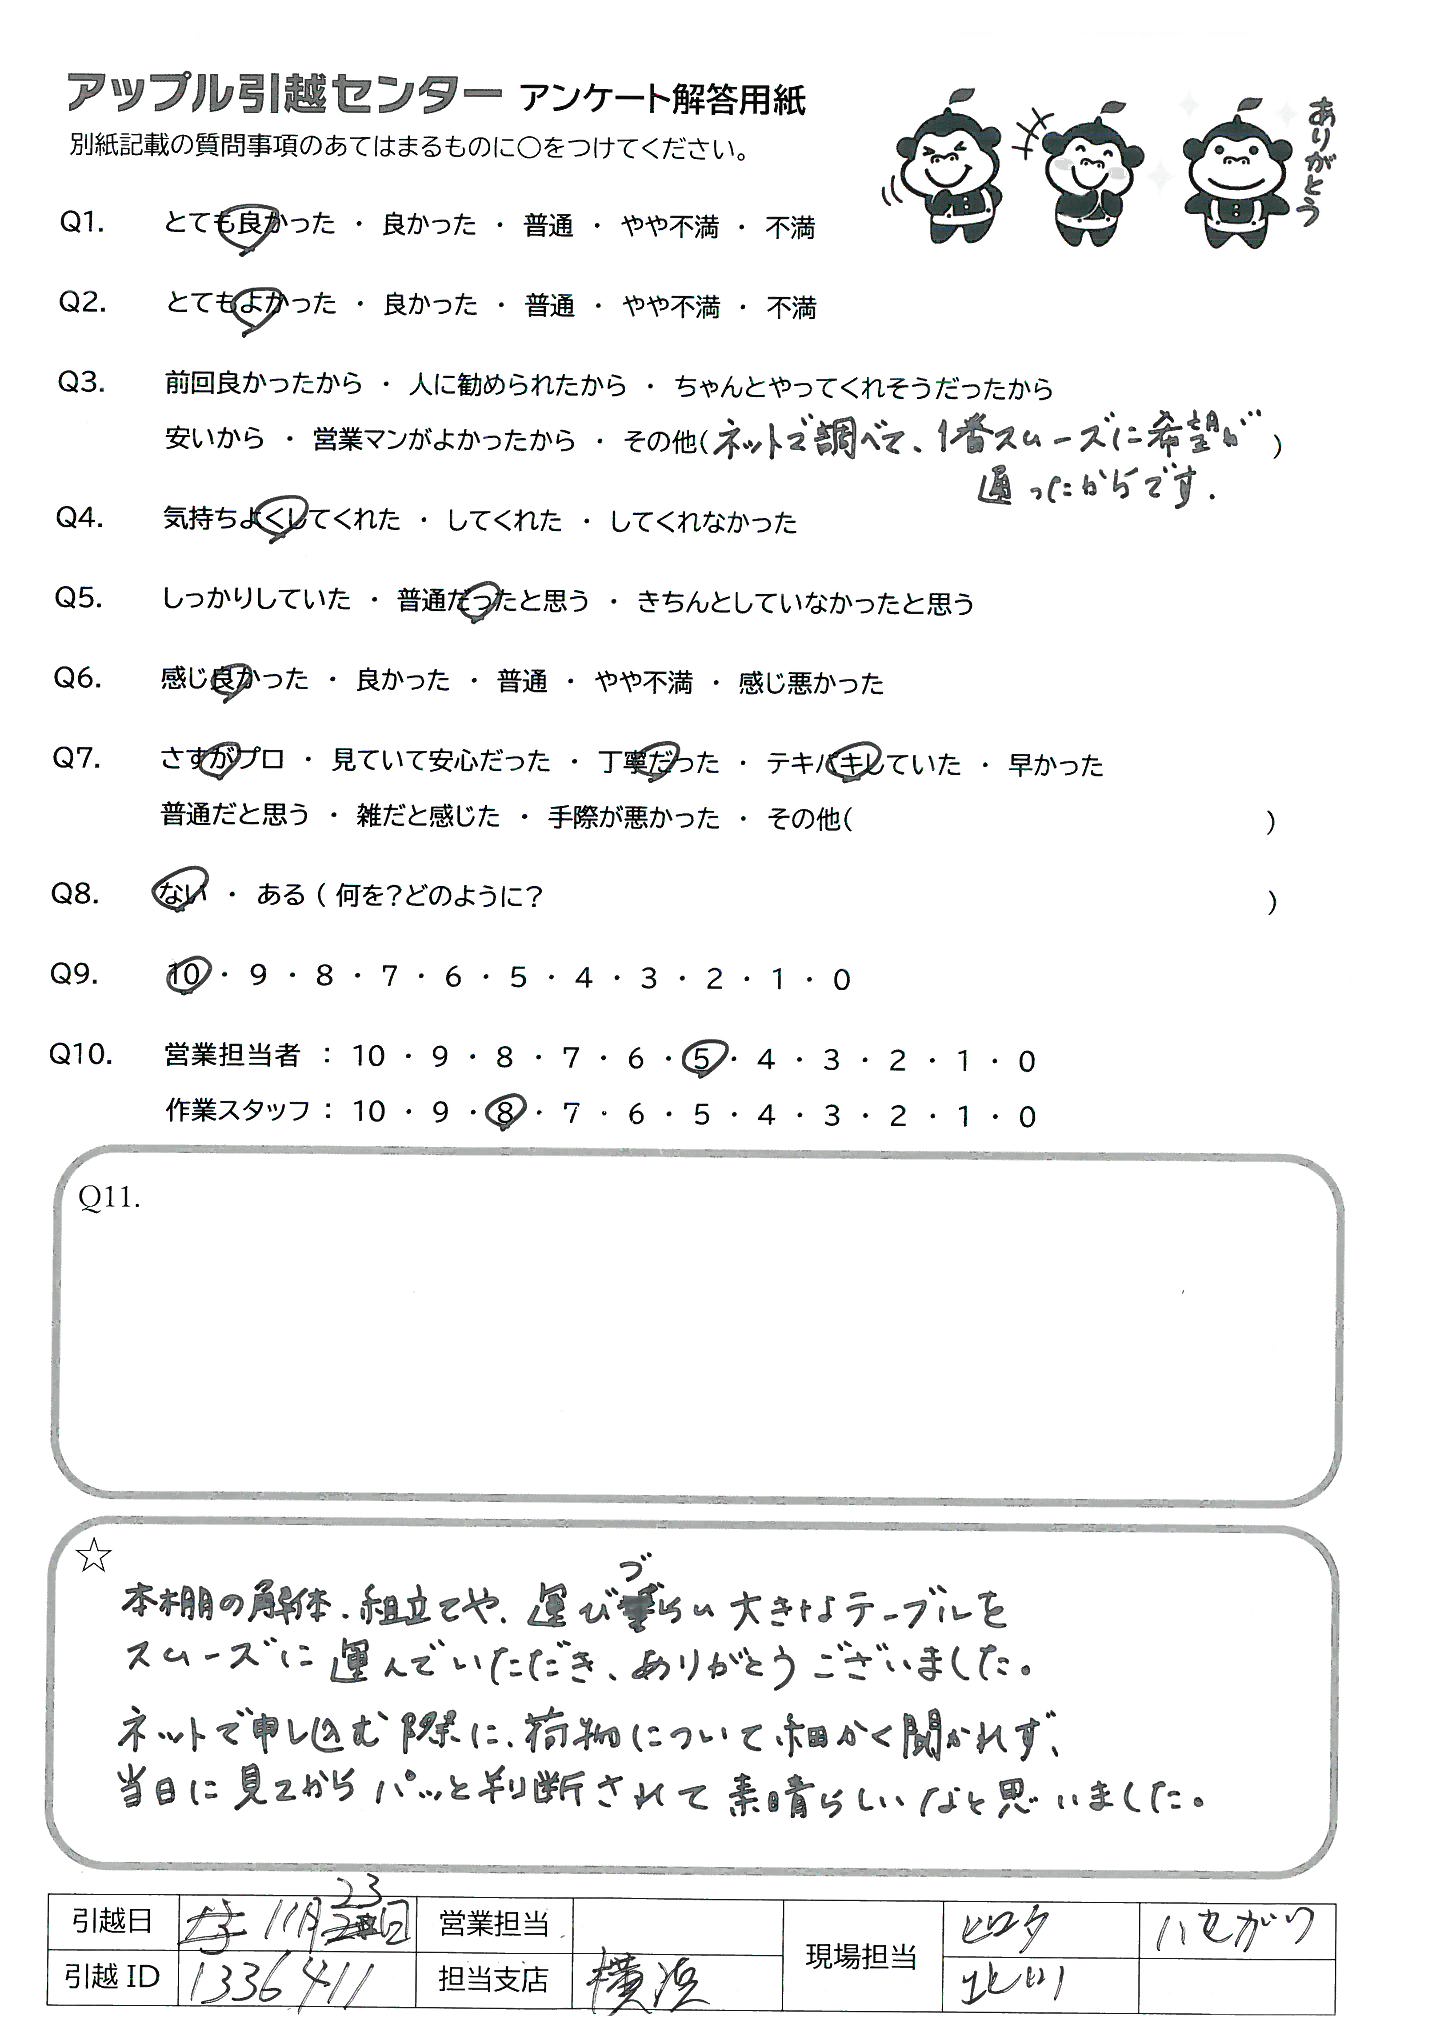 アップル引越センター アンケート解答用紙
別紙記載の質問事項のあてはまるものに○をつけてください。
ありがとう
Q1. とても良かった ・ 良かった ・ 普通 ・ やや不満 ・ 不満
Q2. とてもよかった ・ 良かった ・ 普通 ・ やや不満 ・ 不満
Q3. 前回良かったから ・ 人に勧められたから ・ ちゃんとやってくれそうだったから
安いから ・ 営業マンがよかったから ・ その他(ネットで調べて、1番スムーズに希望が )
通ったからです.
Q4. 気持ちよくしてくれた ・ してくれた ・ してくれなかった
Q5. しっかりしていた ・ 普通だったと思う ・ きちんとしていなかったと思う
Q6. 感じ良かった ・ 良かった ・ 普通 ・ やや不満 ・ 感じ悪かった
Q7. さすがプロ ・ 見ていて安心だった ・ 丁寧だった ・ テキパキしていた ・ 早かった
普通だと思う ・ 雑だと感じた ・ 手際が悪かった ・ その他( )
Q8. ない ・ ある ( 何を?どのように? )
Q9. 10 ・ 9 ・ 8 ・ 7 ・ 6 ・ 5 ・ 4 ・ 3 ・ 2 ・ 1 ・ 0
Q10. 営業担当者 : 10 ・ 9 ・ 8 ・ 7 ・ 6 ・ 5 ・ 4 ・ 3 ・ 2 ・ 1 ・ 0
作業スタッフ : 10 ・ 9 ・ 8 ・ 7 ・ 6 ・ 5 ・ 4 ・ 3 ・ 2 ・ 1 ・ 0
Q11.
☆
本棚の解体、組立てや、運びづらい大きなテーブルを
スムーズに運んでいただき、ありがとうございました。
ネットで申し込む際に、荷物について細かく聞かれず、
当日に見てからパッと判断されて素晴らしいなと思いました。
引越日 11月23日 営業担当 現場担当 ヒロタ ハセガワ
引越ID 1336411 担当支店 横浜 北川